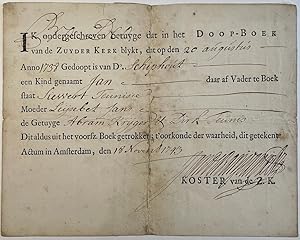 IK ondergeschreven Getuyge dat in het DOOP-BOEK
van de ZUYDER KERK blykt, dat op den 20 augustus
Anno 1737 Gedoopt is van Ds. Schiphout
een Kind genaamt Jan daar af Vader te Boek
staat Sievert Teunisse
Moeder Lijsabet Jans
de Getuyge Abram Kruger Dirk Teunis
Dit aldus uit het voorsz. Boek getrokken; t'oirkonde der waarheid, dit getekent
Actum in Amsterdam, den 18 Novemb 1743
KOSTER van de Z. K.